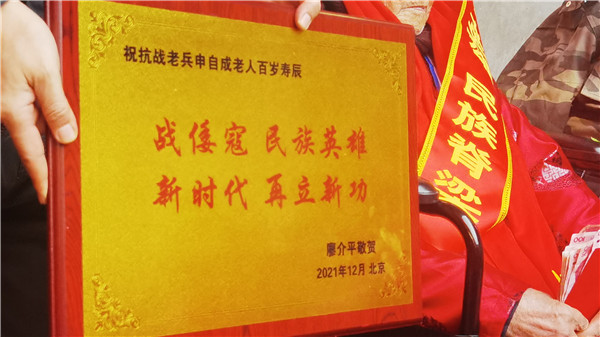 祝抗战老兵申自成老人百岁寿辰
战倭寇 民族英雄
新时代 再立新功
廖介平敬贺
2021年12月 北京
民族脊梁